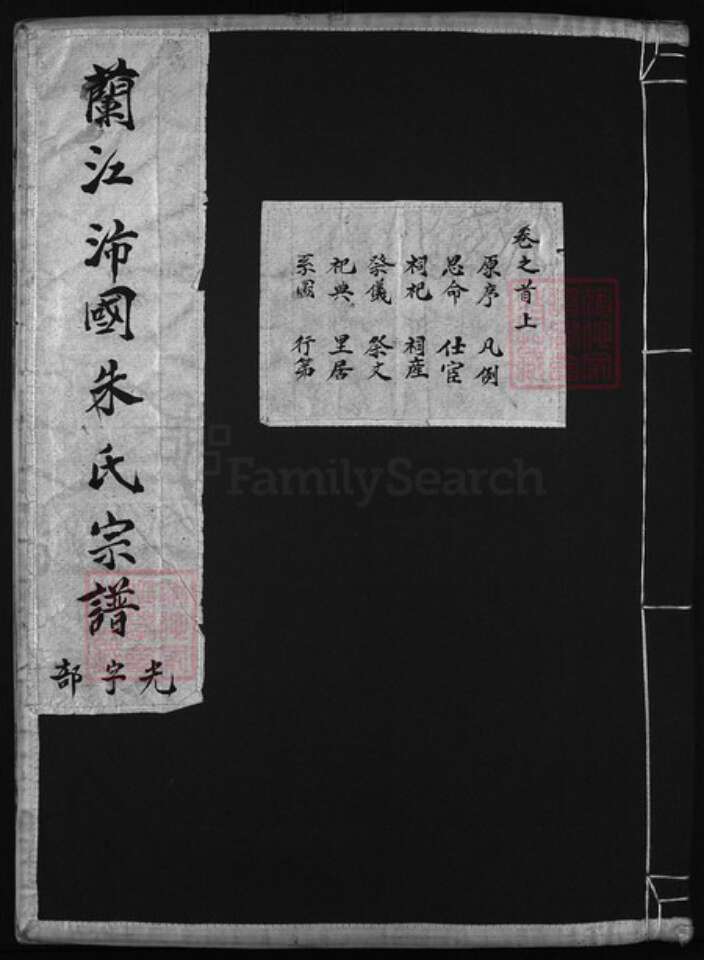 蘭江沛國朱氏宗譜
光字部
卷之首上
原序 凡例
恩命 仕宦
祠祀 祠產
祭儀 祭文
祀典 里居
系圖 行第
FamilySearch